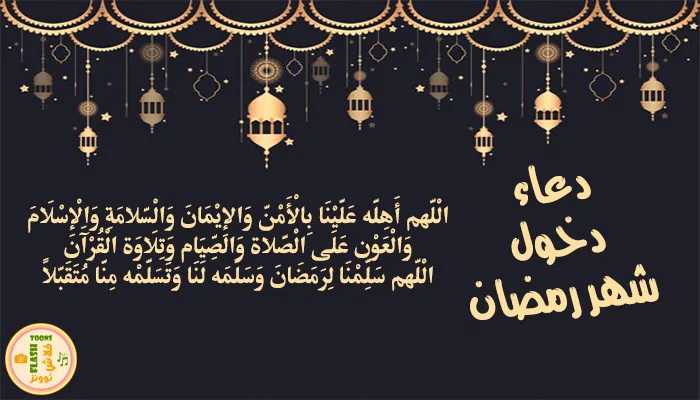 دعاء
دخول
شهر رمضان
الْلّهم أَهِلّه عَلَيْنَا بِالْأَمْنّ وَالإِيْمَانَ وَالْسّلامَةِ وَالْإِسْلَامَ
وَالْعَوْن عَلَى الْصّلاة وَالصِّيَام وَتِلَاوَة الْقُرْآَن
الْلّهم سَلِّمْنَا لِرَمَضَانَ وَسَلِّمَه لَنَا وَتَسَلّمْه مِنّا مُتَقَبّلاً
FLASH TOONS
فلاش توونز